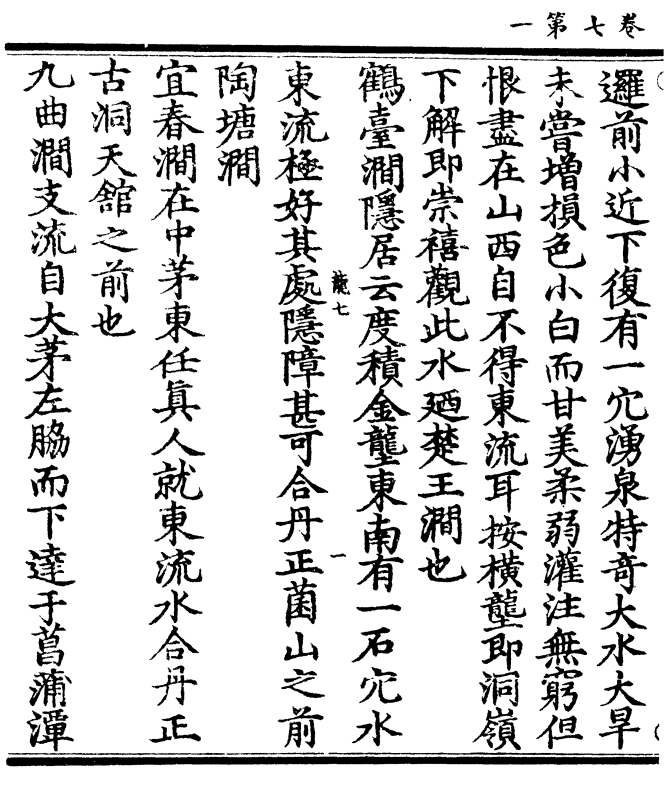 卷七第一
邏前小近下復有一穴湧泉特竒大水大旱
未嘗增損色小白而甘美柔弱灌注無窮但
恨盡在山西自不得東流耳按橫壟即洞嶺
下解即崇禧觀此水廼楚王澗也
鶴臺澗隱居云度積金壟東南有一石穴水
東流極好其處隱障甚可合丹正菌山之前
陶塘澗
宜春澗在中茅東任眞人就東流水合丹正
古洞天舘之前也
九曲澗支流自大茅左脇而下達于菖蒲潭